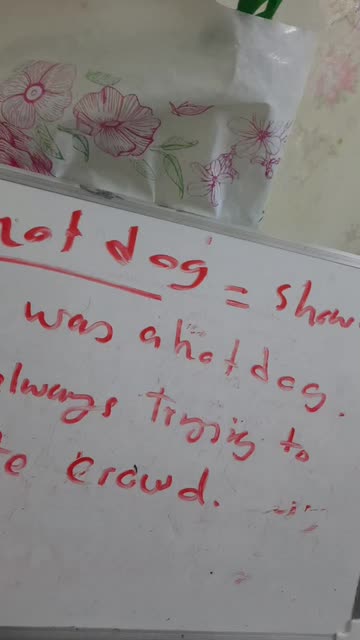 hot dog = show
was a hot dog.
always trying to
crowd.